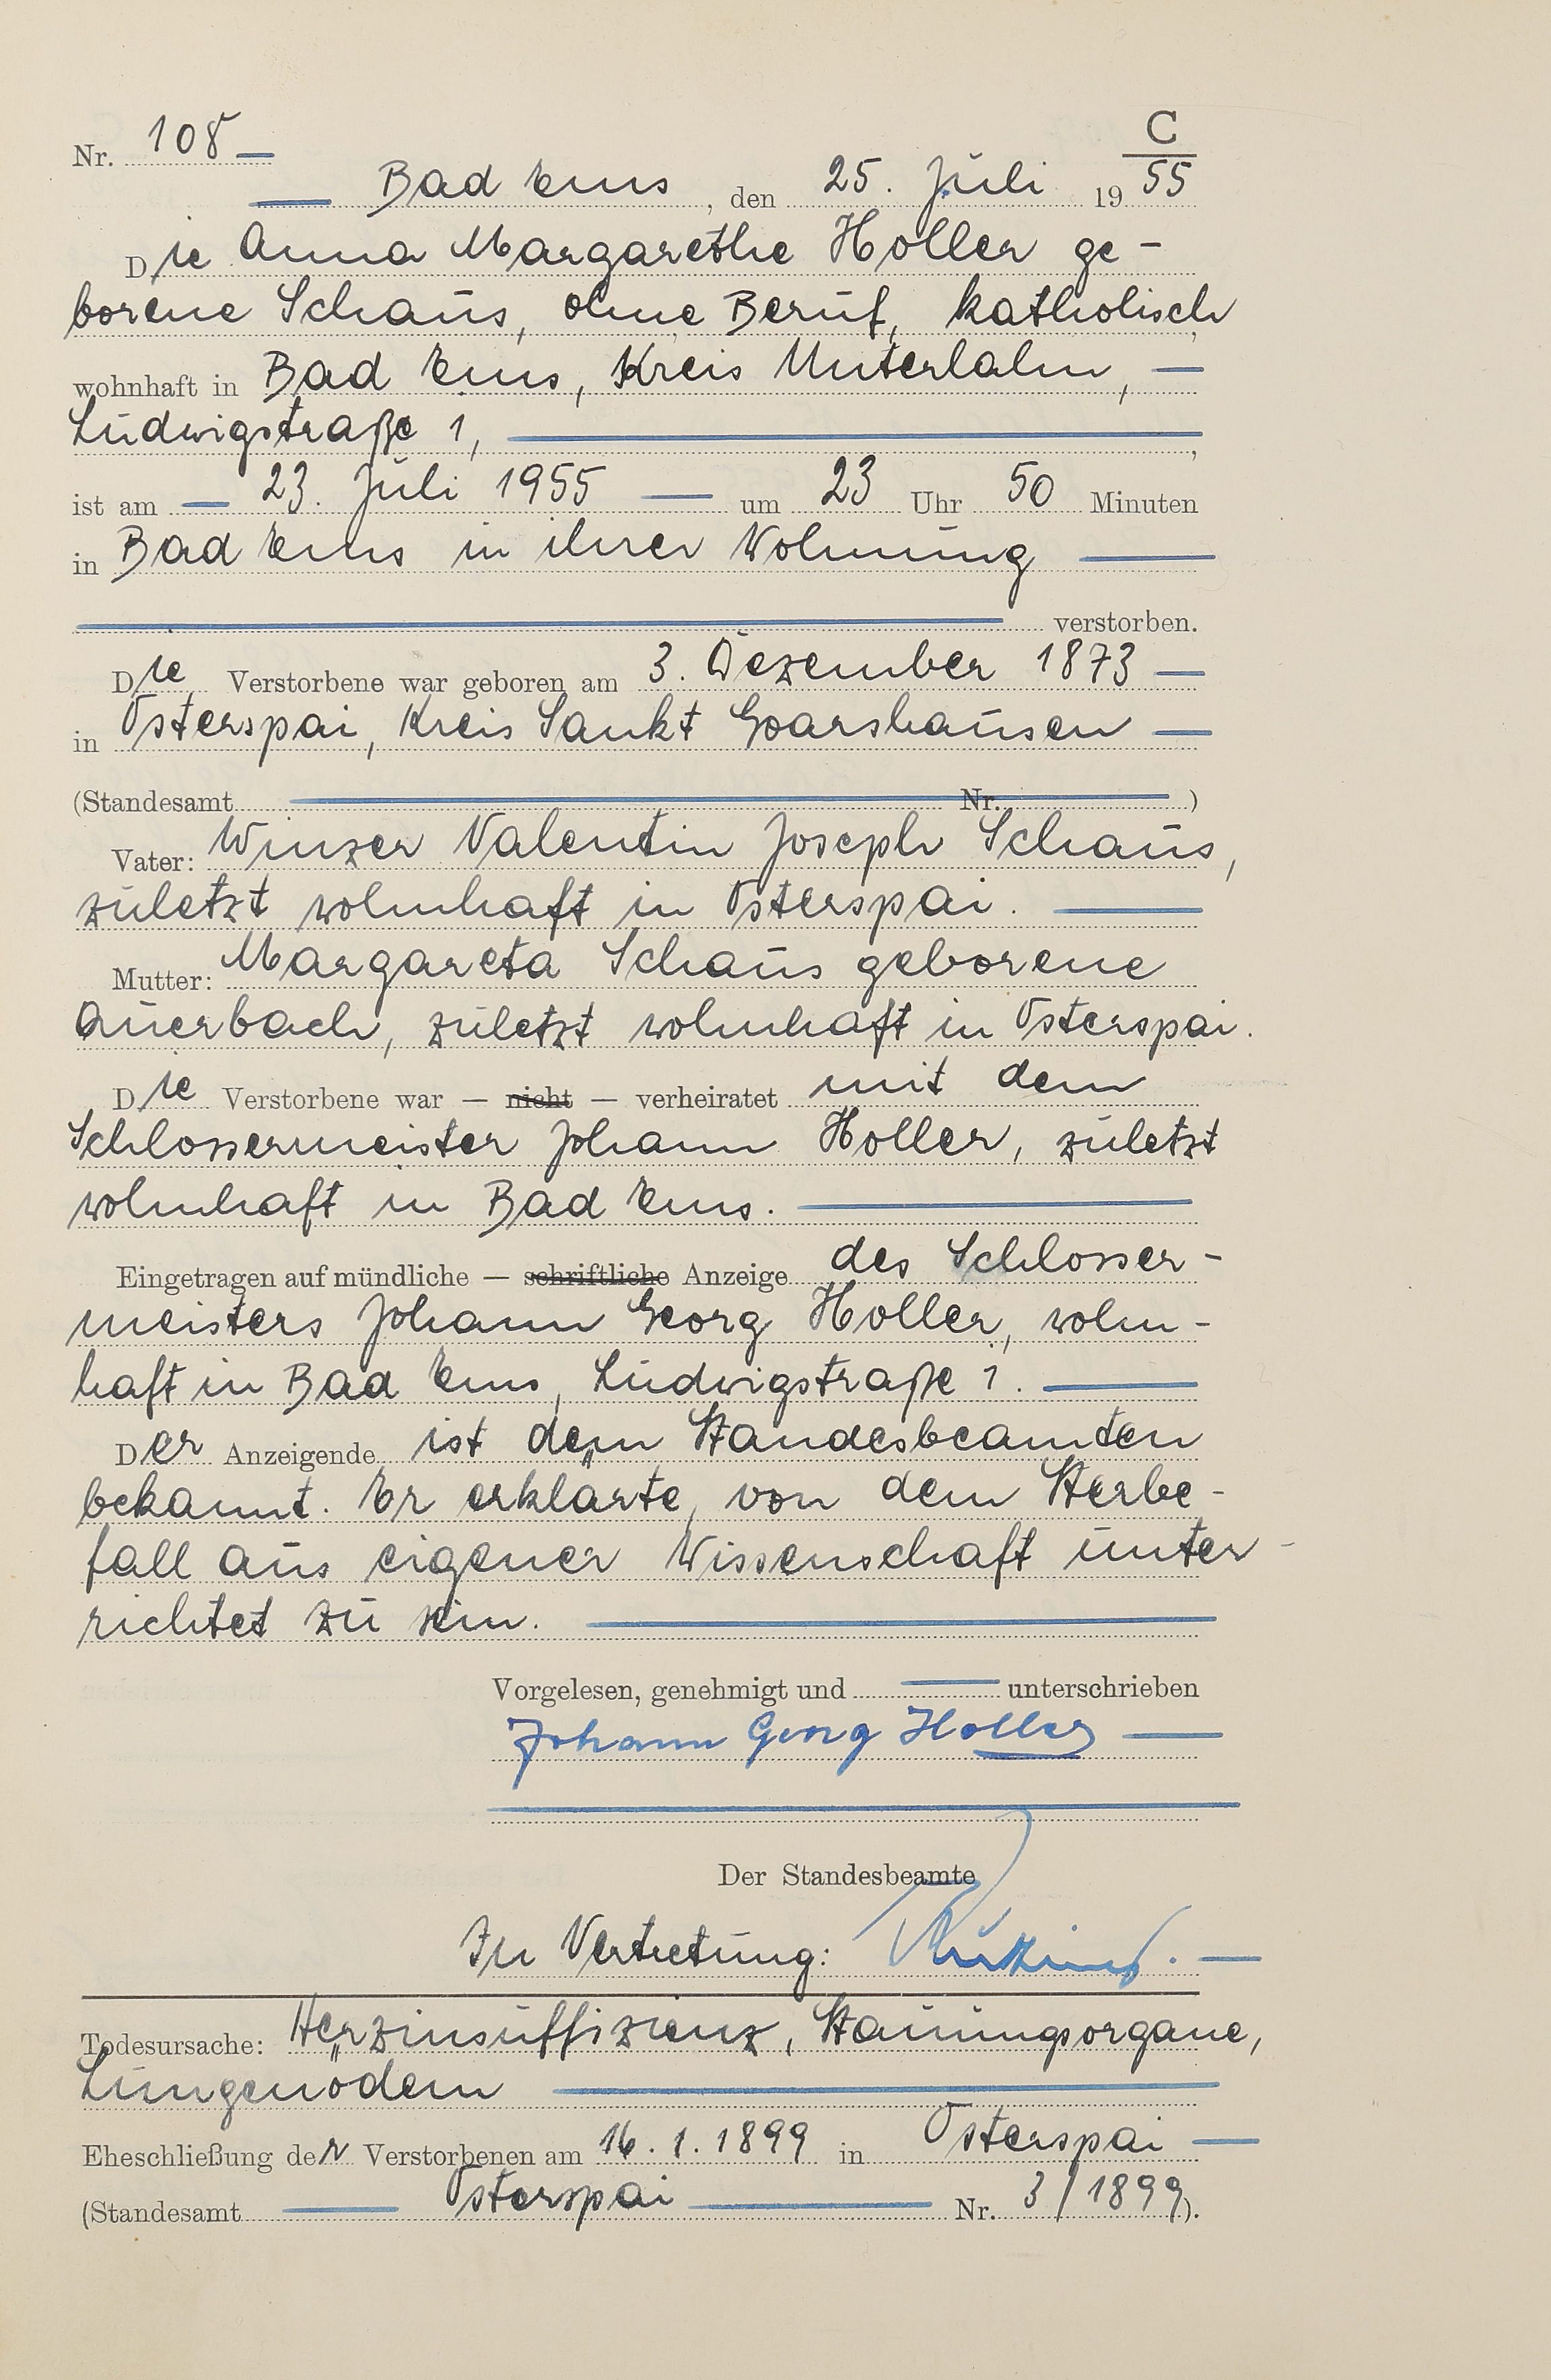 C
Nr. 108
Bad Ems, den 25. Juli 1955
Die Anna Margarethe Holler ge-
borene Schaus, ohne Beruf, katholisch,
wohnhaft in Bad Ems, Kreis Unterlahn,
Ludwigstraße 1,
ist am 23. Juli 1955 um 23 Uhr 50 Minuten
in Bad Ems in ihrer Wohnung
verstorben.
Die Verstorbene war geboren am 3. Dezember 1873
in Osterspai, Kreis Sankt Goarshausen
(Standesamt Nr. )
Vater: Winzer Valentin Joseph Schaus,
zuletzt wohnhaft in Osterspai.
Mutter: Margareta Schaus geborene
Auerbach, zuletzt wohnhaft in Osterspai.
Die Verstorbene war — nicht — verheiratet mit dem
Schlossermeister Johann Holler, zuletzt
wohnhaft in Bad Ems.
Eingetragen auf mündliche — schriftliche Anzeige des Schlosser-
meisters Johann Georg Holler, wohn-
haft in Bad Ems, Ludwigstraße 1.
Der Anzeigende ist dem Standesbeamten
bekannt. Er erklärte, von dem Sterbe-
fall aus eigener Wissenschaft unter-
richtet zu sein.
Vorgelesen, genehmigt und unterschrieben
Johann Georg Holler
Der Standesbeamte
In Vertretung:
Todesursache: Herzinsuffizienz, Stauungsorgane,
Lungenödem
Eheschließung der Verstorbenen am 16.1.1899 in Osterspai
(Standesamt Osterspai Nr. 3/1899).